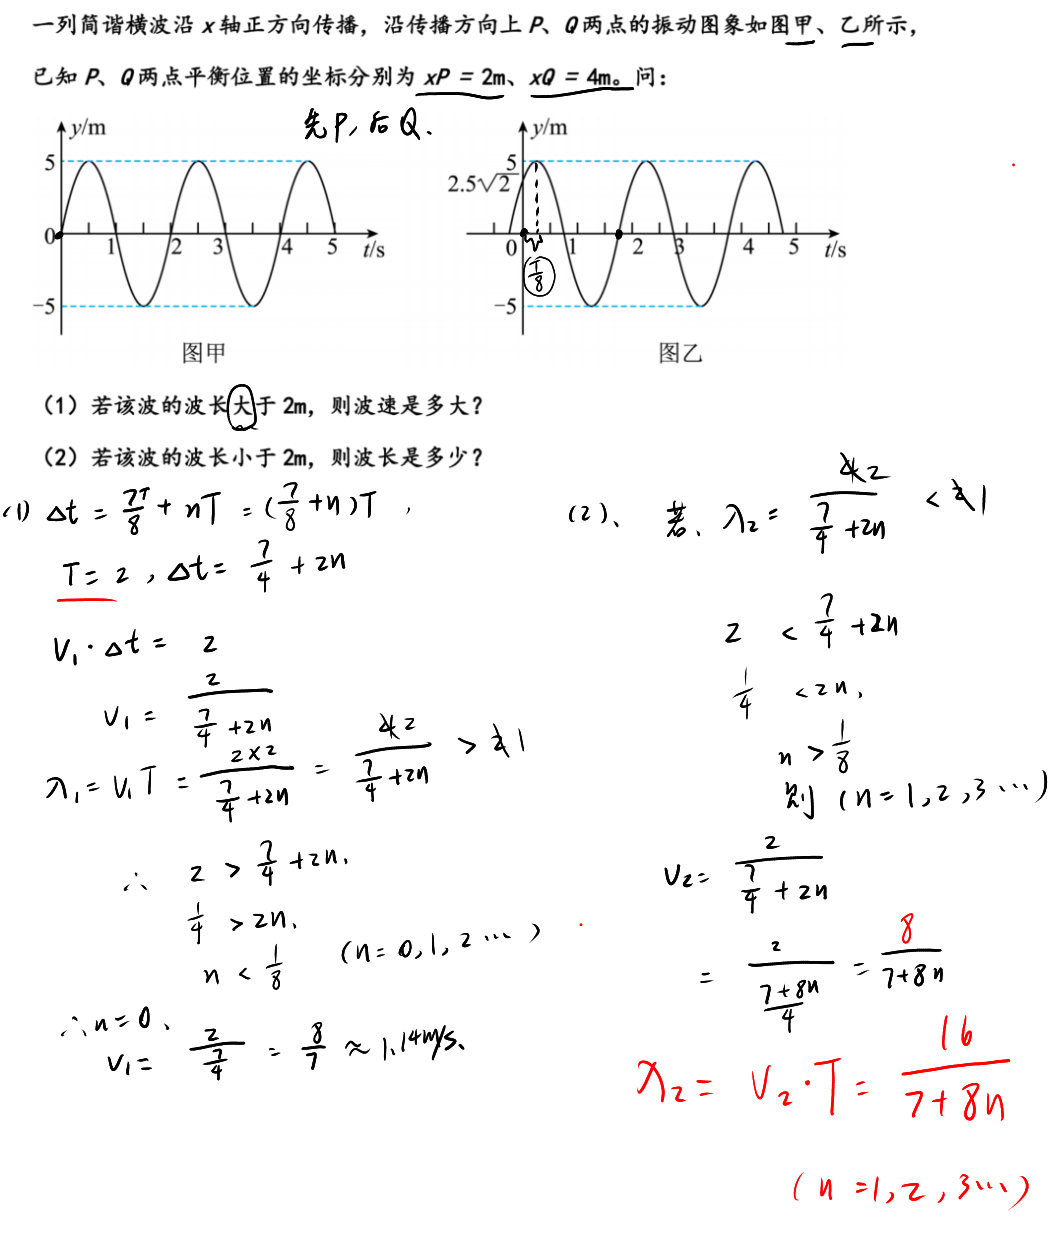 一列简谐横波沿 x 轴正方向传播，沿传播方向上 P、Q 两点的振动图象如图甲、乙所示，
已知 P、Q 两点平衡位置的坐标分别为 xP = 2m、xQ = 4m。问：
先P，后Q.
y/m
5
0
1
2
3
4
5
t/s
−5
图甲
y/m
5
2.5√2
0
1
2
3
4
5
t/s
T/8
−5
图乙
（1）若该波的波长大于 2m，则波速是多大？
（2）若该波的波长小于 2m，则波长是多少？
(1) Δt = 7T/8 + nT = (7/8 + n)T ,
T = 2 , Δt = 7/4 + 2n
V₁·Δt = 2
V₁ = 2/(7/4 + 2n)
λ₁ = V₁T = (2×2)/(7/4 + 2n) = 2/(7/4 + 2n) > 1
∴ 2 > 7/4 + 2n.
1/4 > 2n.
n < 1/8 (n = 0, 1, 2 ⋯)
∴ n = 0 、
V₁ = 2/(7/4) = 8/7 ≈ 1.14m/s.
(2)、 若、λ₂ = 2/(7/4 + 2n) < 1
2 < 7/4 + 2n
1/4 < 2n.
n > 1/8
则 (n = 1, 2, 3 ⋯)
V₂ = 2/(7/4 + 2n)
= 2/((7+8n)/4) = 8/(7+8n)
λ₂ = V₂·T = 16/(7+8n)
(n = 1, 2, 3⋯)